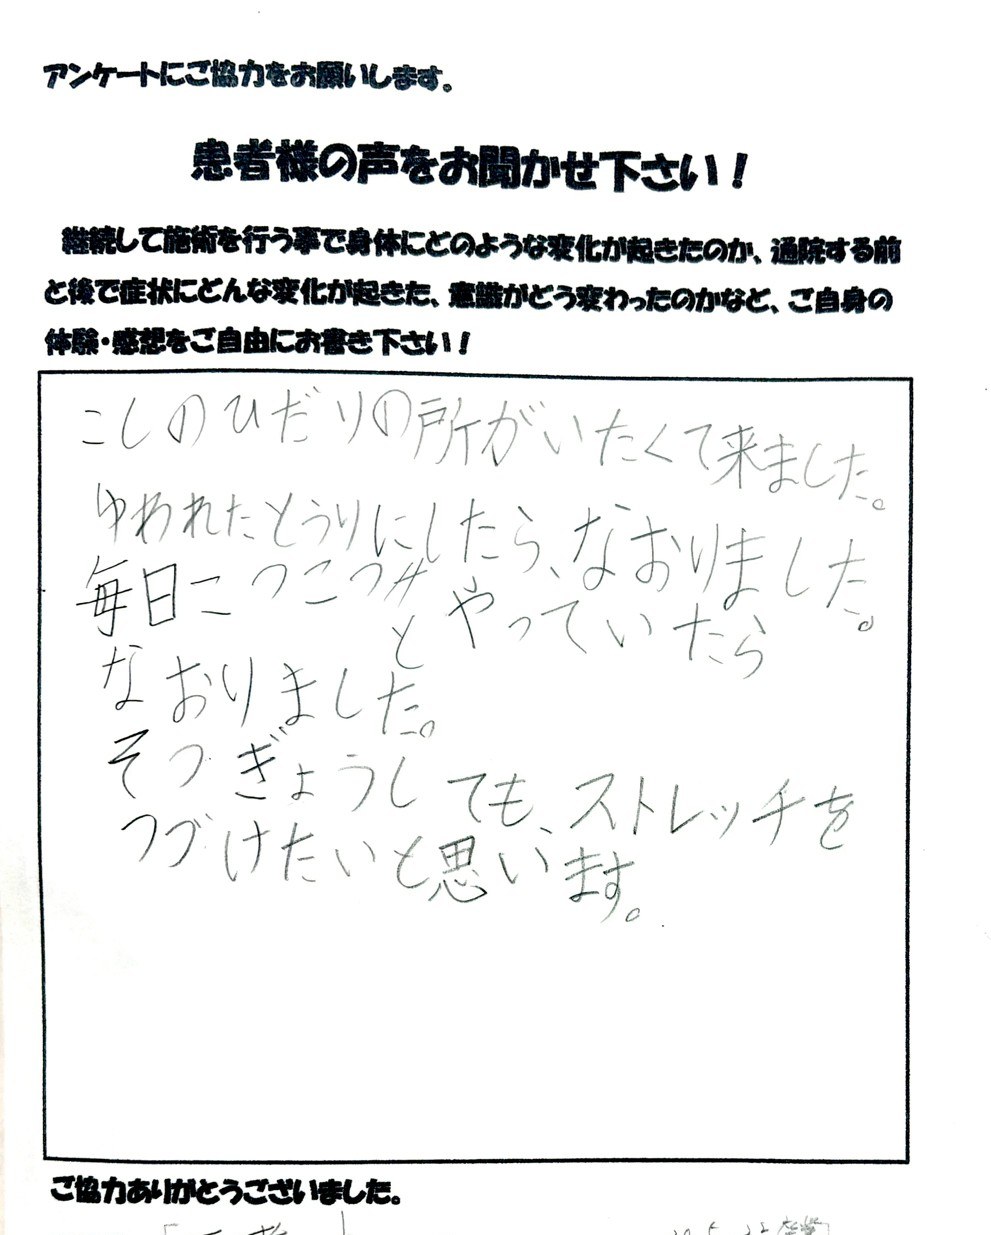 アンケートにご協力をお願いします。
患者様の声をお聞かせ下さい！
継続して施術を行う事で身体にどのような変化が起きたのか、通院する前
と後で症状にどんな変化が起きた、意識がどう変わったのかなど、ご自身の
体験・感想をご自由にお書き下さい！
こしのひだりの所がいたくて来ました。
ゆわれたとうりにしたら、なおりました。
毎日こつこつ
とやっていたら
なおりました。
そつぎょうしても、ストレッチを
つづけたいと思います。
ご協力ありがとうございました。